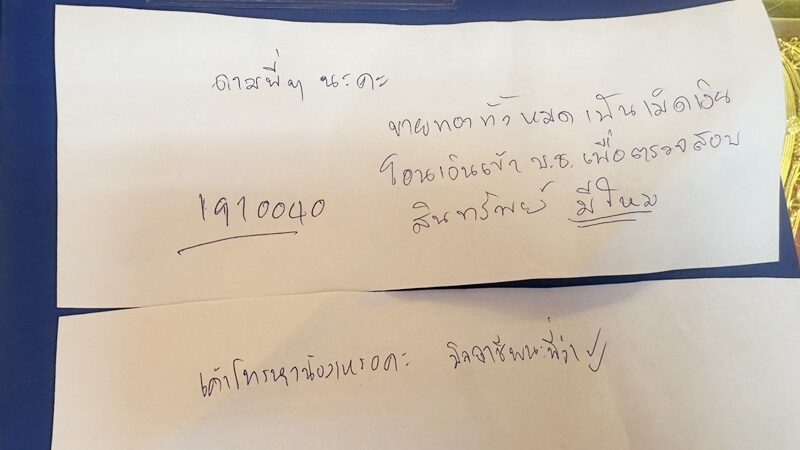 ถามพี่ๆ นะคะ
ขายทองทั้งหมดเป็นเม็ดเงิน
โอนเงินเข้า บ.ช. เพื่อตรวจสอบ
สินทรัพย์ มีไหม
1910040
เค้าโทรหาน้องเหรอคะ มิจฉาชีพนะพี่ว่า